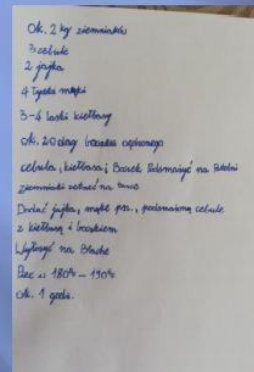 Ok. 2 kg ziemniaków
3 cebule
2 jajka
4 łyżki mąki
3-4 laski kiełbasy
ok. 20 dag boczku wędzonego
cebula, kiełbasa i Boczek Podsmażyć na Patelni
ziemniaki zetrzeć na tarce
Dodać jajka, mąkę prz., podsmażoną cebulę
z kiełbasą i boczkiem
Wyłożyć na Blachę
Piec w 180° - 190°
ok. 1 godz.